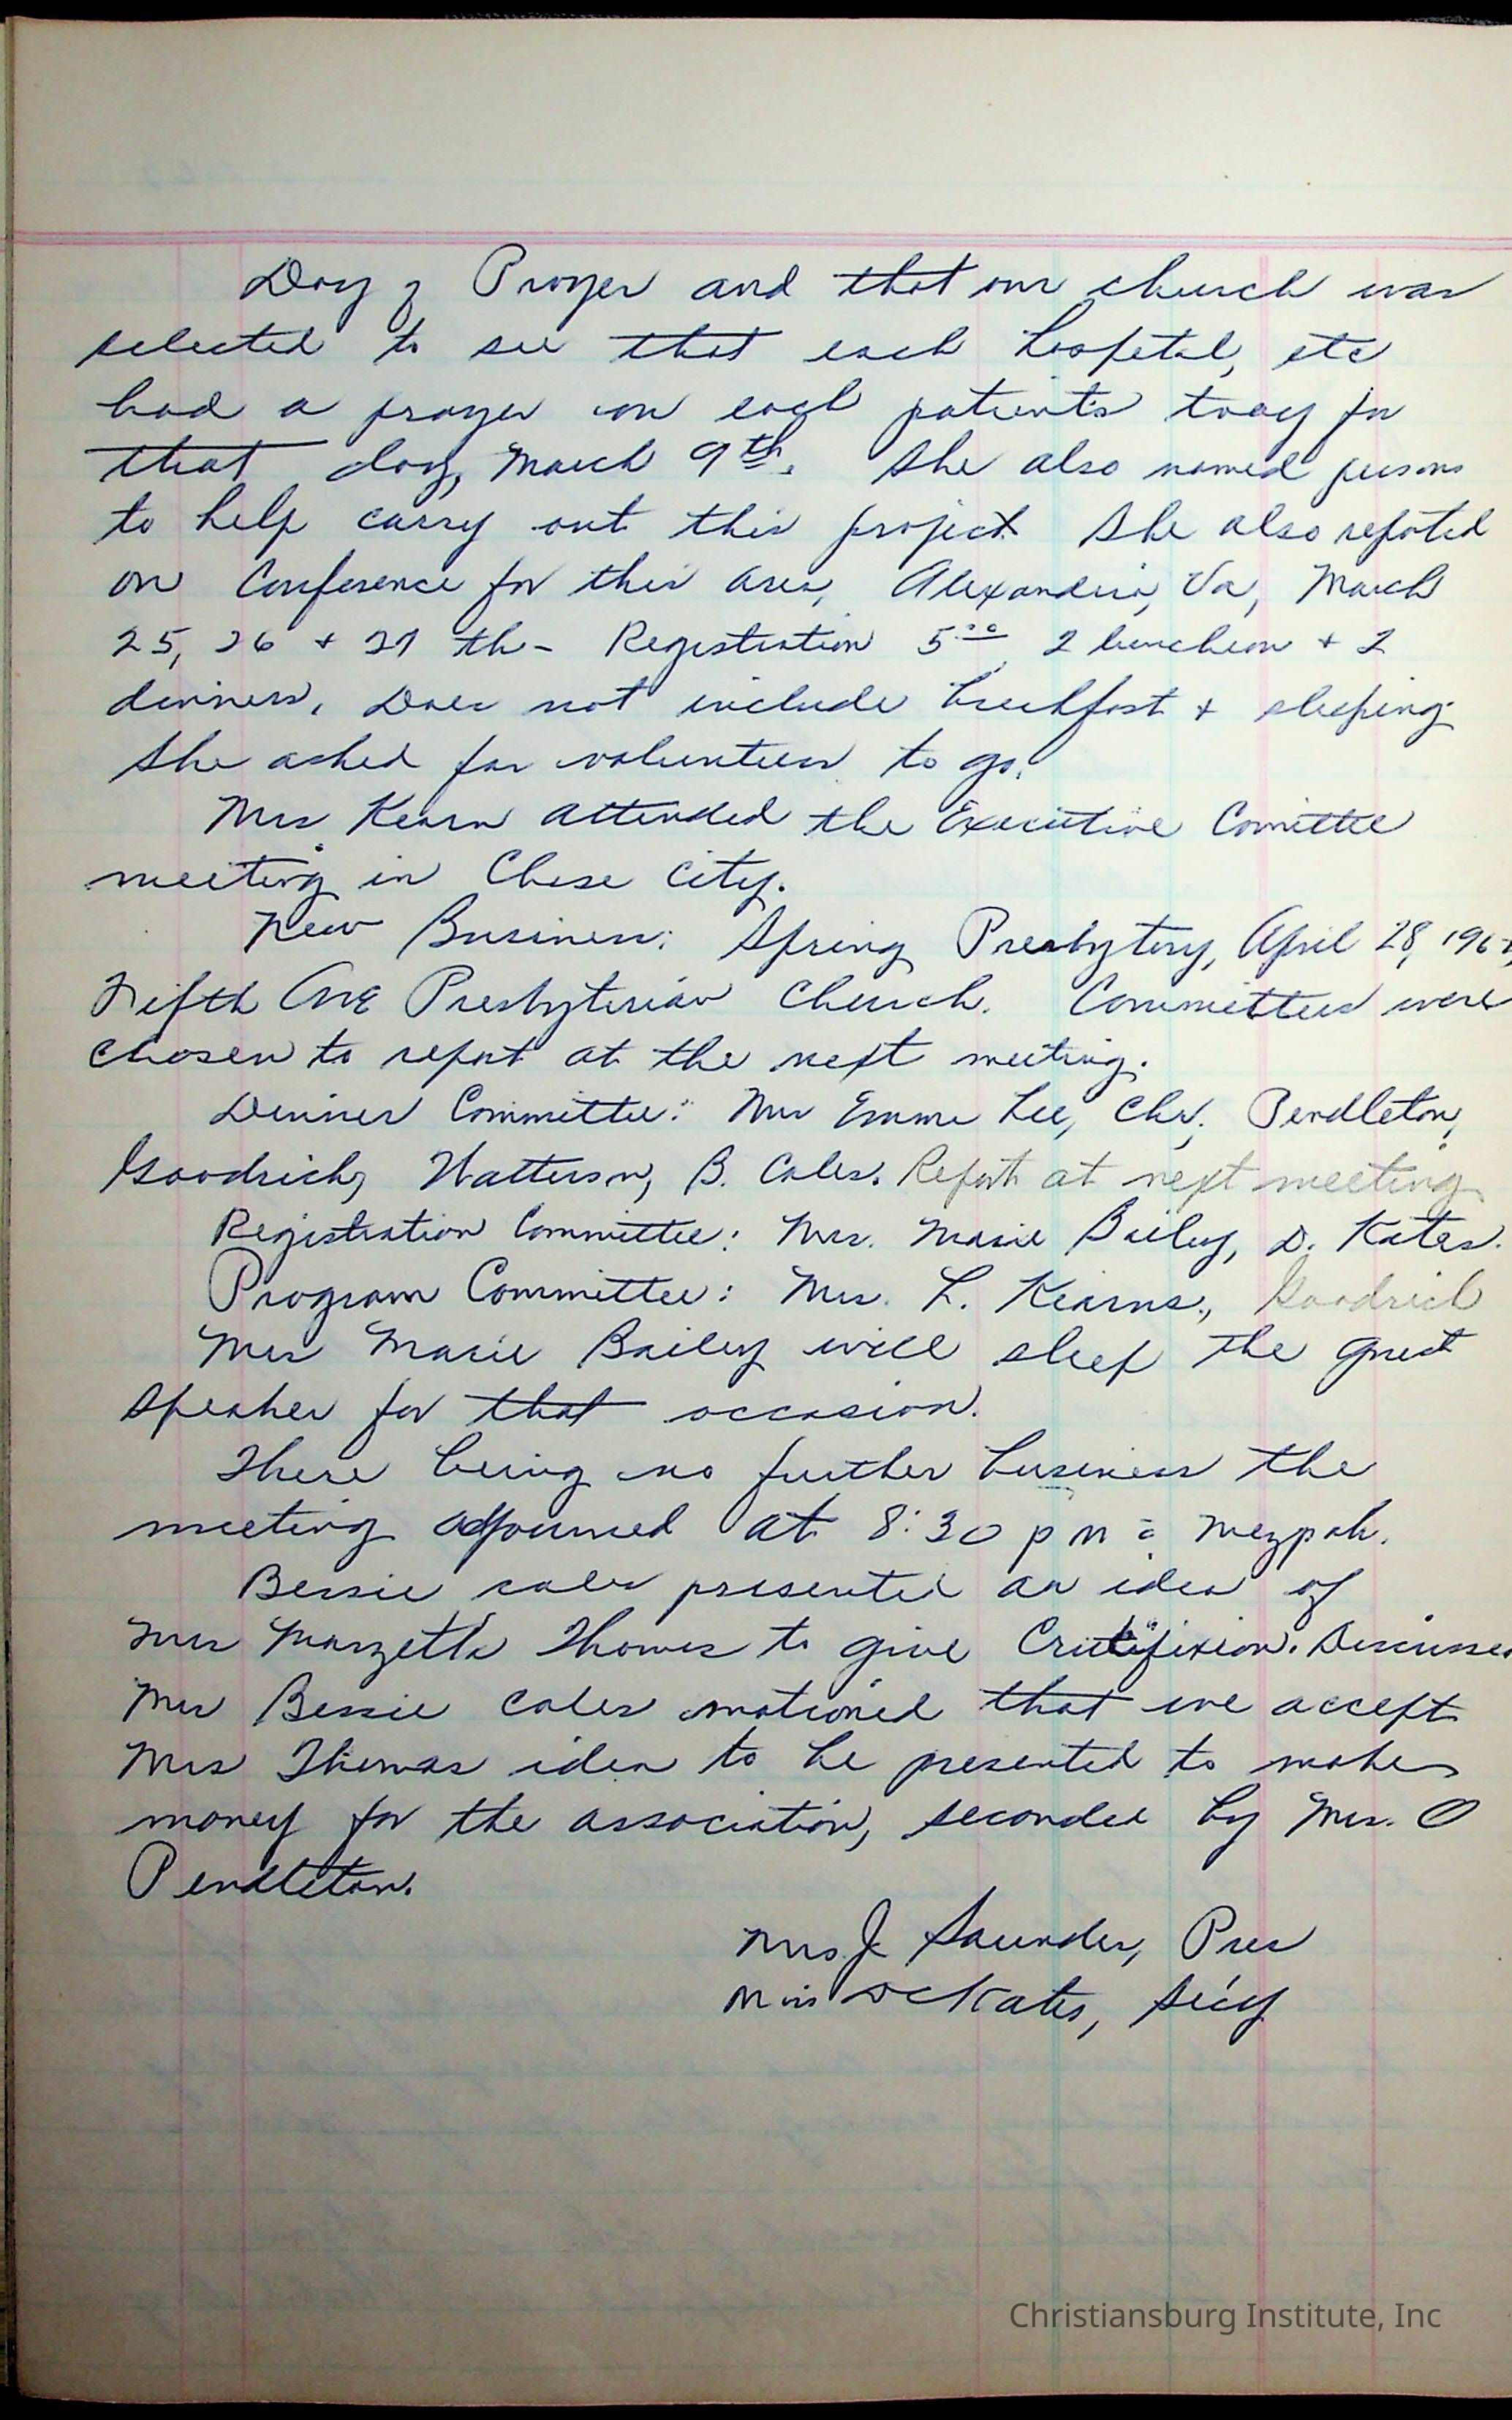 Day of Prayer and that our church was
selected to see that each hospital, etc
had a prayer on each patients tray for
that day, March 9th. She also named persons
to help carry out this project. She also repoted
on Conference for this area, Alexandria, Va, March
25, 26 + 27 th - Registration 5.00, 2 luncheon + 2
dinners, Does not include breakfast + sleeping
She asked for volunteers to go.
Mrs Kearn attended the Executive Comittee
meeting in Chase City.
New Business: Spring Presbytery, April 28,
Fifth Ave Presbyterian Church. Committees were
chosen to report at the next meeting.
Dinner Committee: Mrs Emma Lee, Chr, Pendleton,
Goodrich, Watterson, B. Cales. Report at next meeting
Registration Committee: Mrs. Marie Bailey, D. Kates.
Program Committee: Mrs. L. Kearns., Goodrich
Mrs Marie Bailey will sleep the guest
speaker for that occasion.
There being no further business the
meeting adjourned at 8:30 p m c̄ mezpah.
Bessie cales presented an idea of
Mrs Marzetta Thomas to give Crucifixion. Discussed
Mrs Bessie Cales motioned that we accept
Mrs Thomas idea to be presented to make
money for the association, seconded by Mrs. O
Pendleton.
Mrs. J. Saunders, Pres
Mrs D C Kates, Sec'y
Christiansburg Institute, Inc